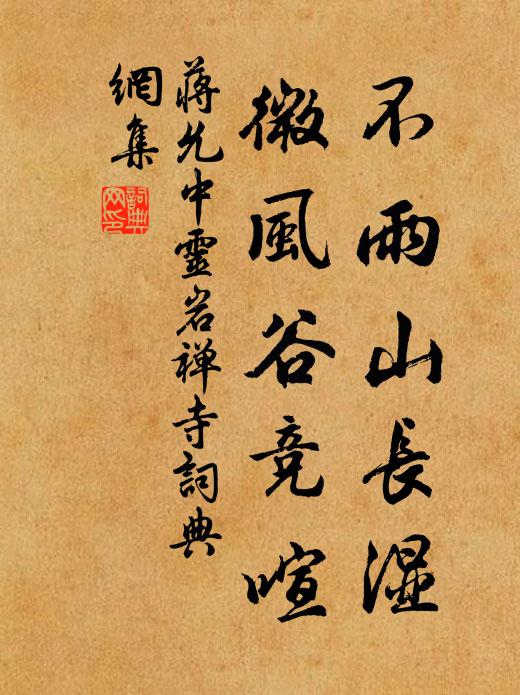 不雨山長濕
微風谷竞喧
蔣允中靈岩禅寺詞典
網集
詞典
网印